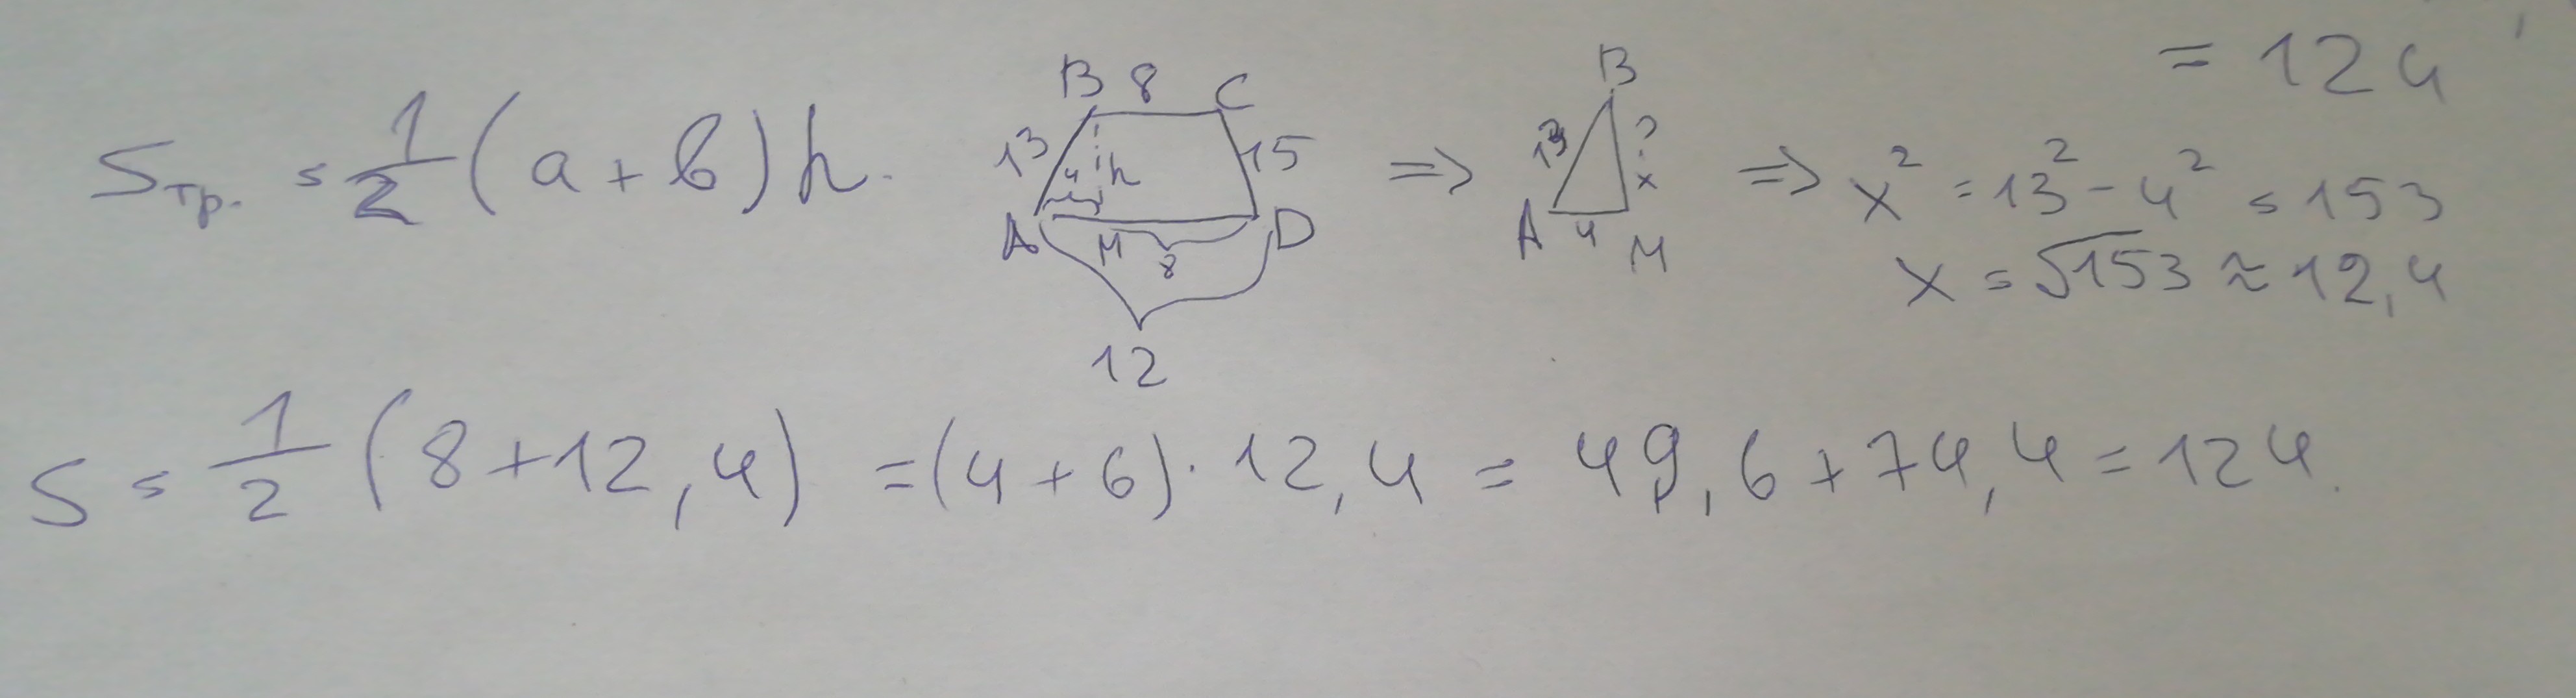 = 124
Sтр. = 1/2 (a + b) h.
B 8 C
13 4 h 15
A M 8 D
12
=>
B
13 ? x
A 4 M
=> x² = 13² - 4² = 153
x = √153 ≈ 12,4
S = 1/2 (8 + 12,4) = (4 + 6) · 12,4 = 49,6 + 74,4 = 124.